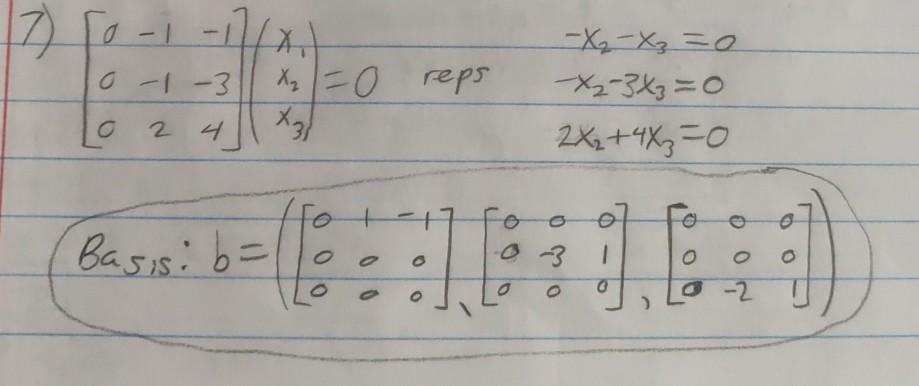 7) [0 -1 -1; 0 -1 -3; 0 2 4] (x₁; x₂; x₃) = 0 reps
-x₂ - x₃ = 0
-x₂ - 3x₃ = 0
2x₂ + 4x₃ = 0
Basis: b = ([0 1 -1; 0 0 0; 0 0 0], [0 0 0; 0 -3 1; 0 0 0], [0 0 0; 0 0 0; 0 -2 1])